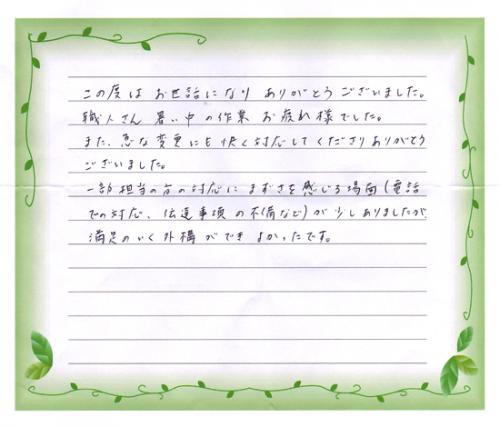 この度は お世話になり ありがとう ございました。
職人さん 暑い中の作業 お疲れ様でした。
また、急な変更にも快く対応してくださりありがとう
ございました。
一部担当の方の対応に まずさを感じる場面(電話
での対応、伝達事項の不備など)が少しありましたが、
満足のいく外構ができ よかったです。